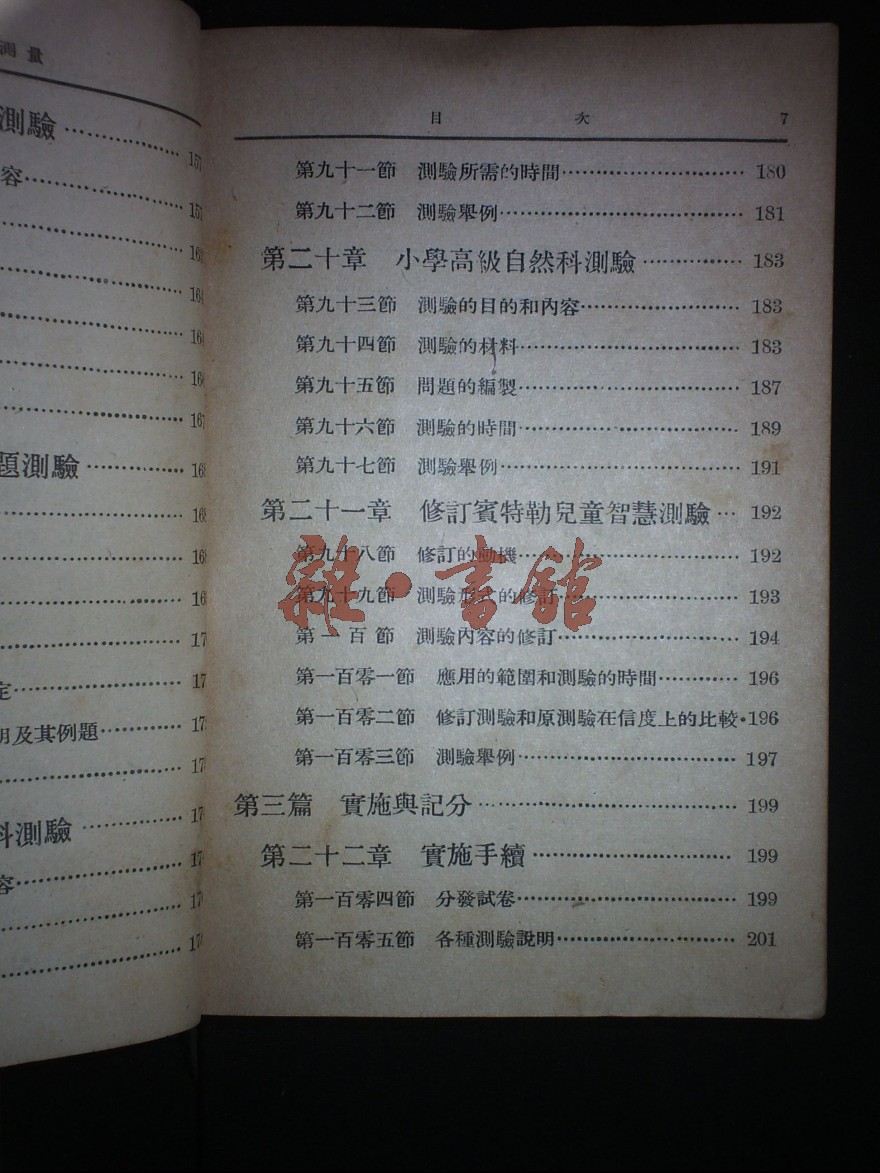 測量
測驗 157
容 157
167
題測驗
定
明及其例題
科測驗
容
目 次 7
第九十一節 測驗所需的時間 180
第九十二節 測驗舉例 181
第二十章 小學高級自然科測驗 183
第九十三節 測驗的目的和內容 183
第九十四節 測驗的材料 183
第九十五節 問題的編製 187
第九十六節 測驗的時間 189
第九十七節 測驗舉例 191
第二十一章 修訂賓特勒兒童智慧測驗 192
第九十八節 修訂的動機 192
第九十九節 測驗形式的修訂 193
第一百節 測驗內容的修訂 194
第一百零一節 應用的範圍和測驗的時間 196
第一百零二節 修訂測驗和原測驗在信度上的比較 196
第一百零三節 測驗舉例 197
第三篇 實施與記分 199
第二十二章 實施手續 199
第一百零四節 分發試卷 199
第一百零五節 各種測驗說明 201
雜·書館